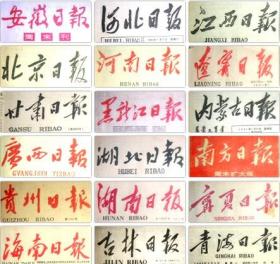 安徽日报
周末刊
河北日報
HEBEI RIBAO
江西日報
JIANGXI RIBAO
北京日报
河南日報
HENAN RIBAO
遼寧日報
LIAONING RIBAO
甘肃日報
GANSU RIBAO
黑龍江日報
内蒙古日報
廣西日報
GVANGJSIH YIZBAU
湖北日報
HUBEI RIBAO
南方日报
周末扩大版
贵州日報
GUIZHOU RIBAO
湖南日報
HUNAN RIBAO
寧夏日報
NINGXIA RIBAO
海南日報
吉林日報
JILIN RIBAO
青海日報
QINGHAI RIBAO